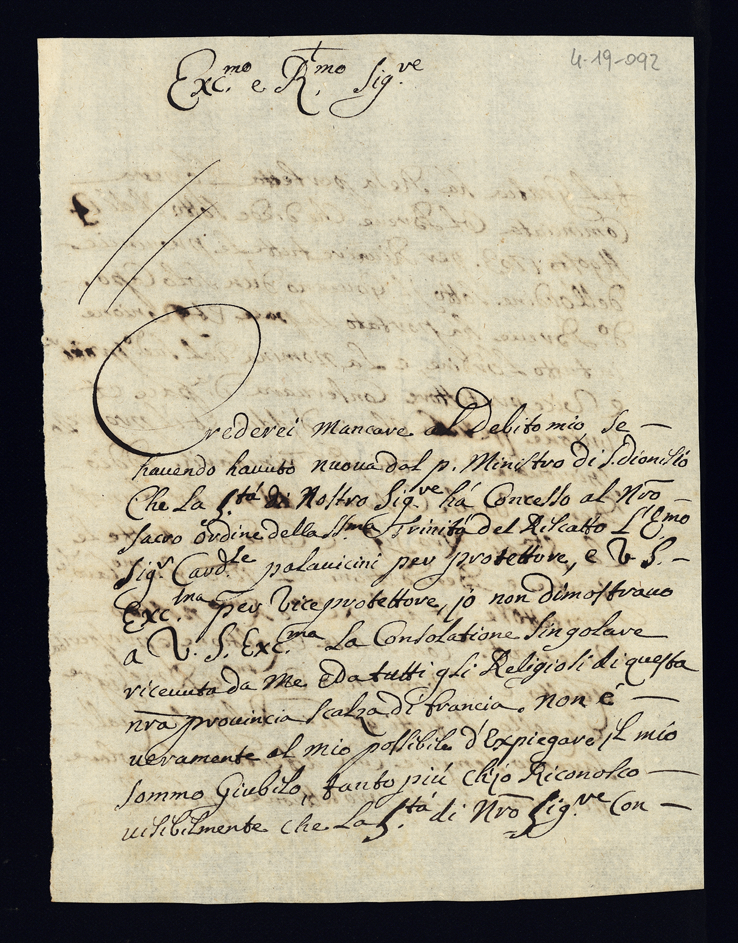 4-19-092
Exc.mo e R.mo Sig.re
Crederei mancare al Debito mio, se —
havendo havuto nuova dal p. Ministro di S. Dionisio
Che La S.tà di Nostro Sig.re há Concesso al Nr̃o
sacro ordine della SS.ma Trinitá del Riscatto L'Emo
Sig.r Card.le palavicini per protettore, e V. S. —
Exc.ma per Viceprotettore, jo non dimostravo
a V. S. Exc.ma La Consolatione singolare
ricevuta da me e Da tutti gli Religiosi di questa
nr̃a provincia scalza di francia. non é —
veramente al mio possibile d'Expiegare il mio
sommo Giubilo, tanto piú ch'jo Riconosco —
visibilmente che La S.tá di Nr̃o Sig.re Con —